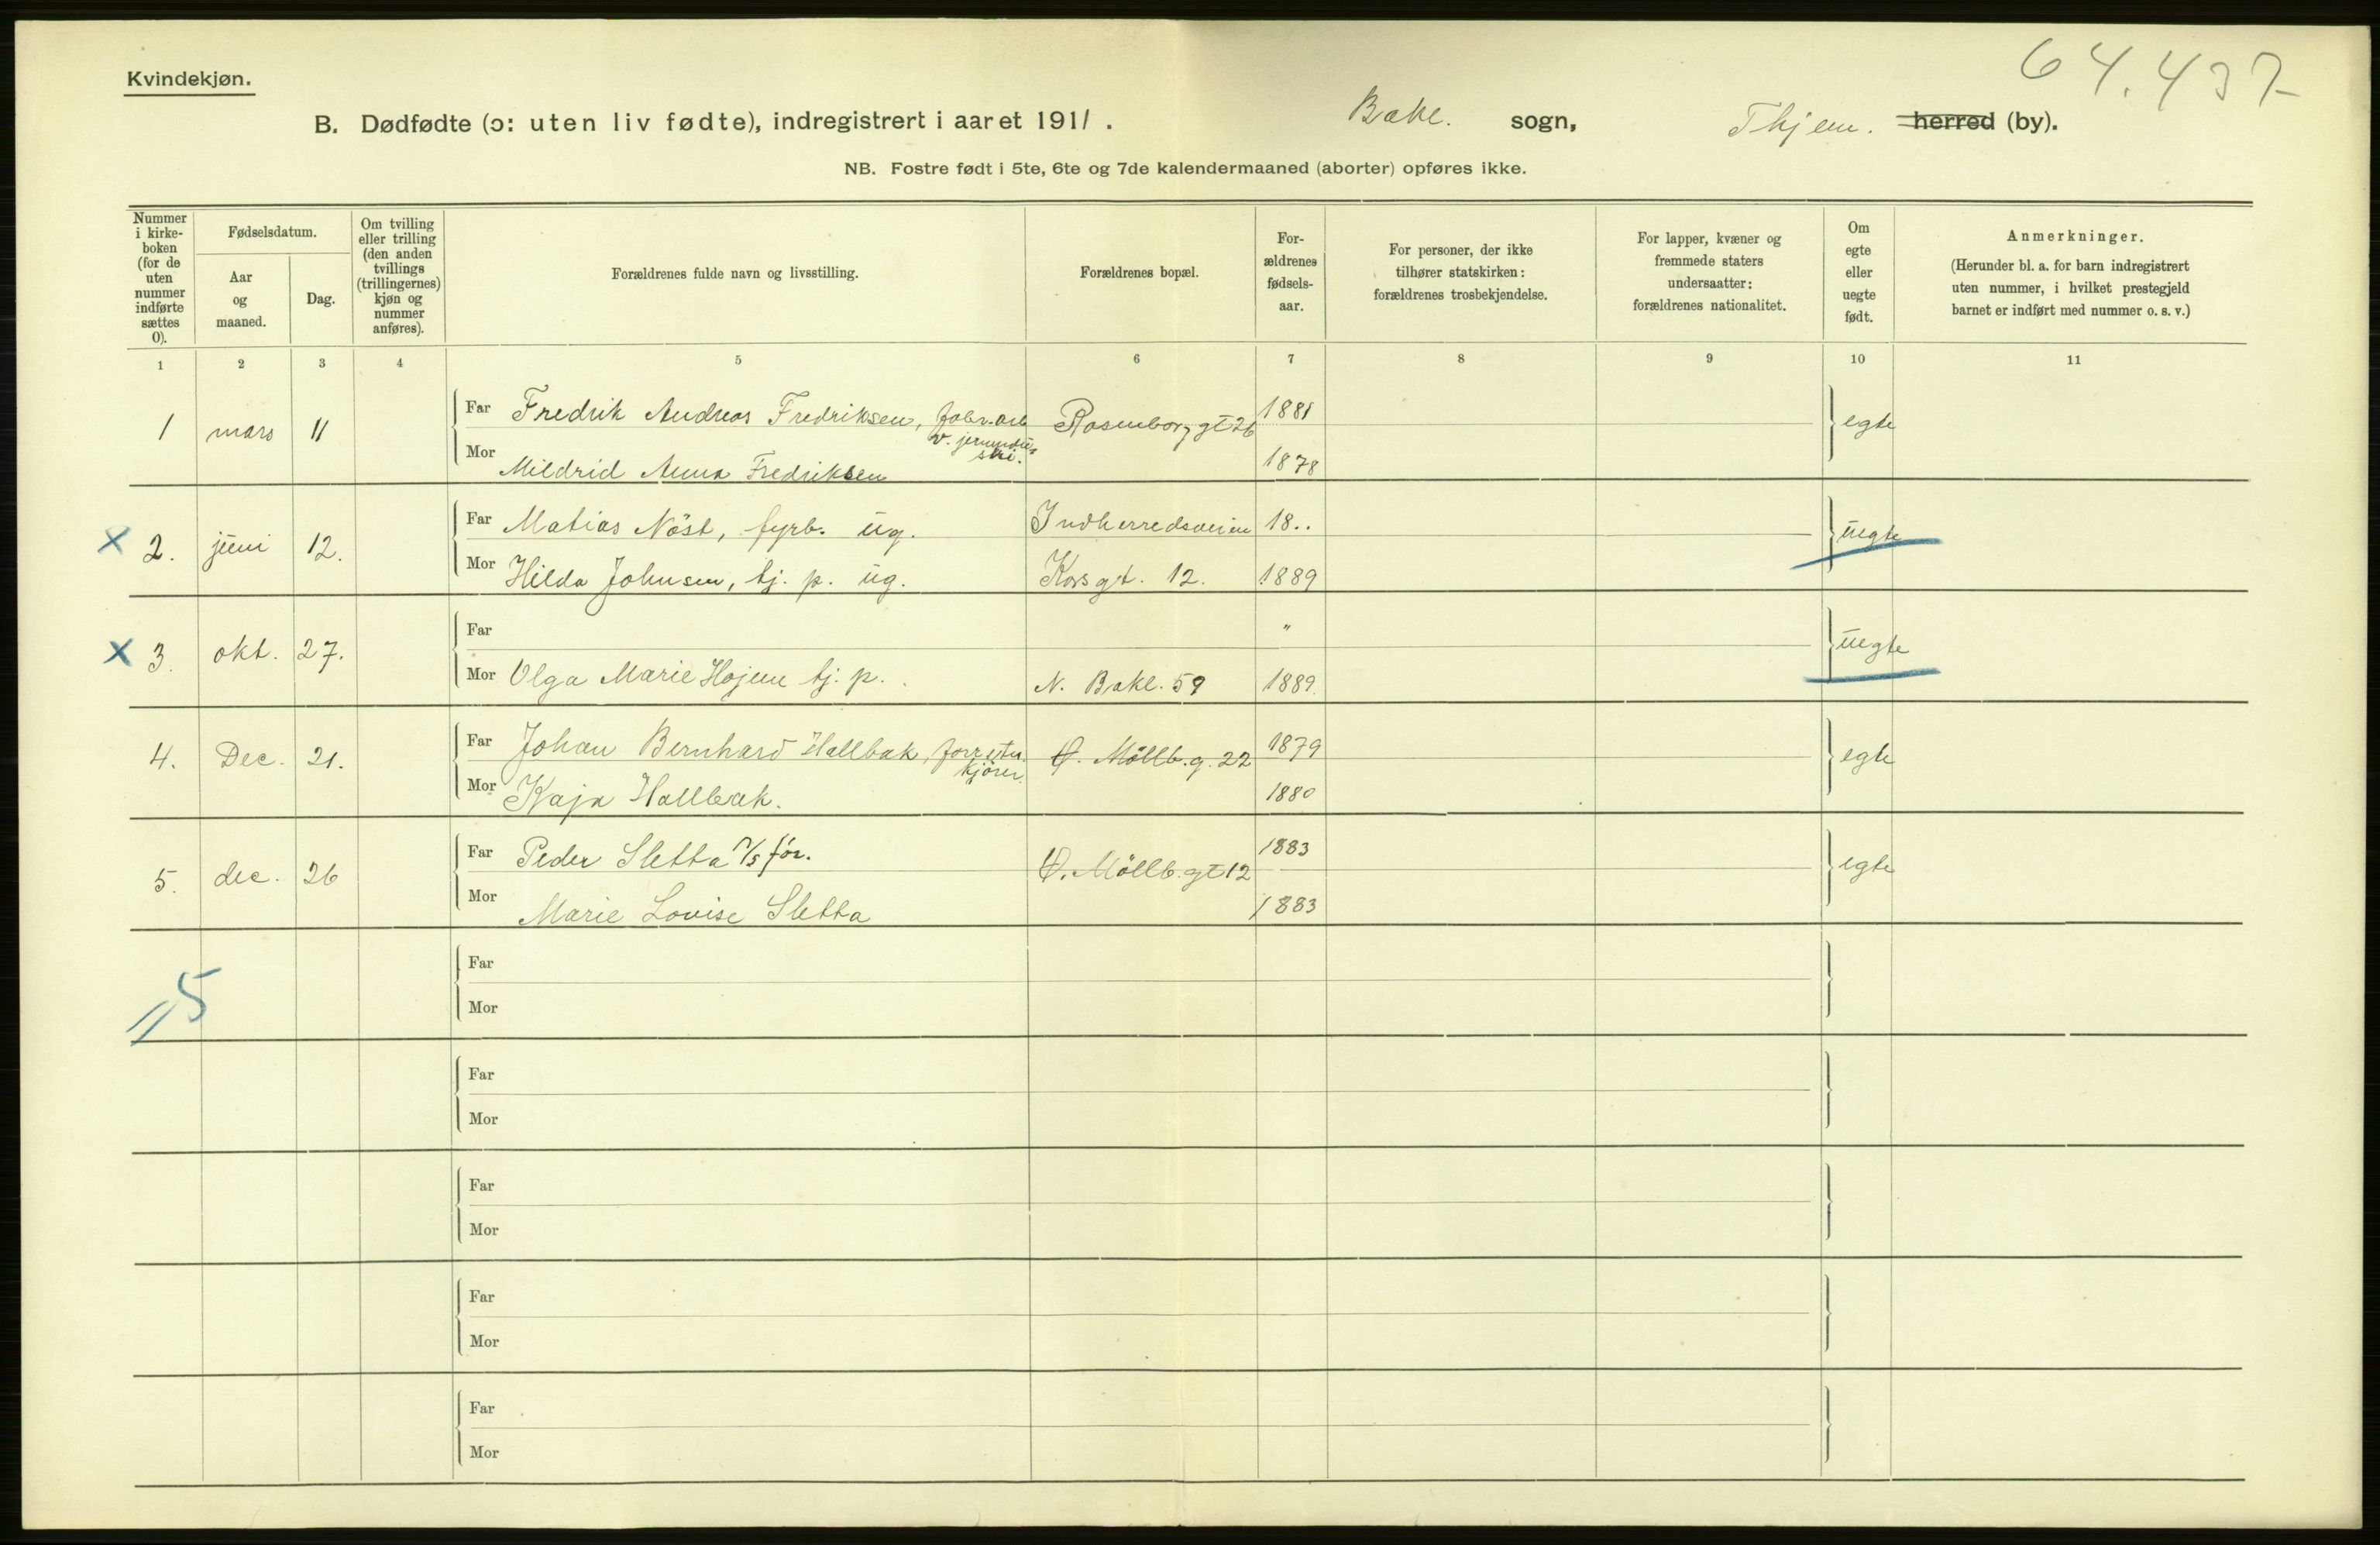 64.437
Kvindekjøn.
B. Dødfødte (ɔ: uten liv fødte), indregistrert i aaret 1911. Bakl. sogn, Thjem. herred (by).
NB. Fostre født i 5te, 6te og 7de kalendermaaned (aborter) opføres ikke.
Nummer i kirke- boken (for de uten nummer indførte sættes 0).
Fødselsdatum.
Aar og maaned.
Dag.
Om tvilling eller trilling (den anden tvillings (trillingernes) kjøn og nummer anføres).
Forældrenes fulde navn og livsstilling.
Forældrenes bopæl.
For- ældrenes fødsels- aar.
For personer, der ikke tilhører statskirken: forældrenes trosbekjendelse.
For lapper, kvæner og fremmede staters undersaatter: forældrenes nationalitet.
Om egte eller uegte født.
Anmerkninger.
(Herunder bl. a. for barn indregistrert uten nummer, i hvilket prestegjeld barnet er indført med nummer o. s. v.)
1 2 3 4 5 6 7 8 9 10 11
1 mars 11 Far Fredrik Andreas Fredriksen, fabr.arb. Rosenborg gt 26 1881 egte
Mor Mildrid Anna Fredriksen 1878
X 2. juni 12. Far Matias Nöst, fyrb. ug. Indherredsveien 18.. uegte
Mor Hilda Johnsen, tj. p. ug. Korsgt. 12. 1889
X 3. okt. 27. Far " uegte
Mor Olga Marie Hojem tj. p. N. Bakl. 59 1889.
4. Dec. 21. Far Johan Bernhard Hallbak, Ø. Möllb.g. 22 1879 egte
kjörer
Mor Kaja Hallbak. 1880
5. dec. 26 Far Peder Sletta Ø. Möllb.gt 12 1883 egte
Mor Marie Lovise Sletta 1883
Far
5
Mor
Far
Mor
Far
Mor
Far
Mor
Far
Mor